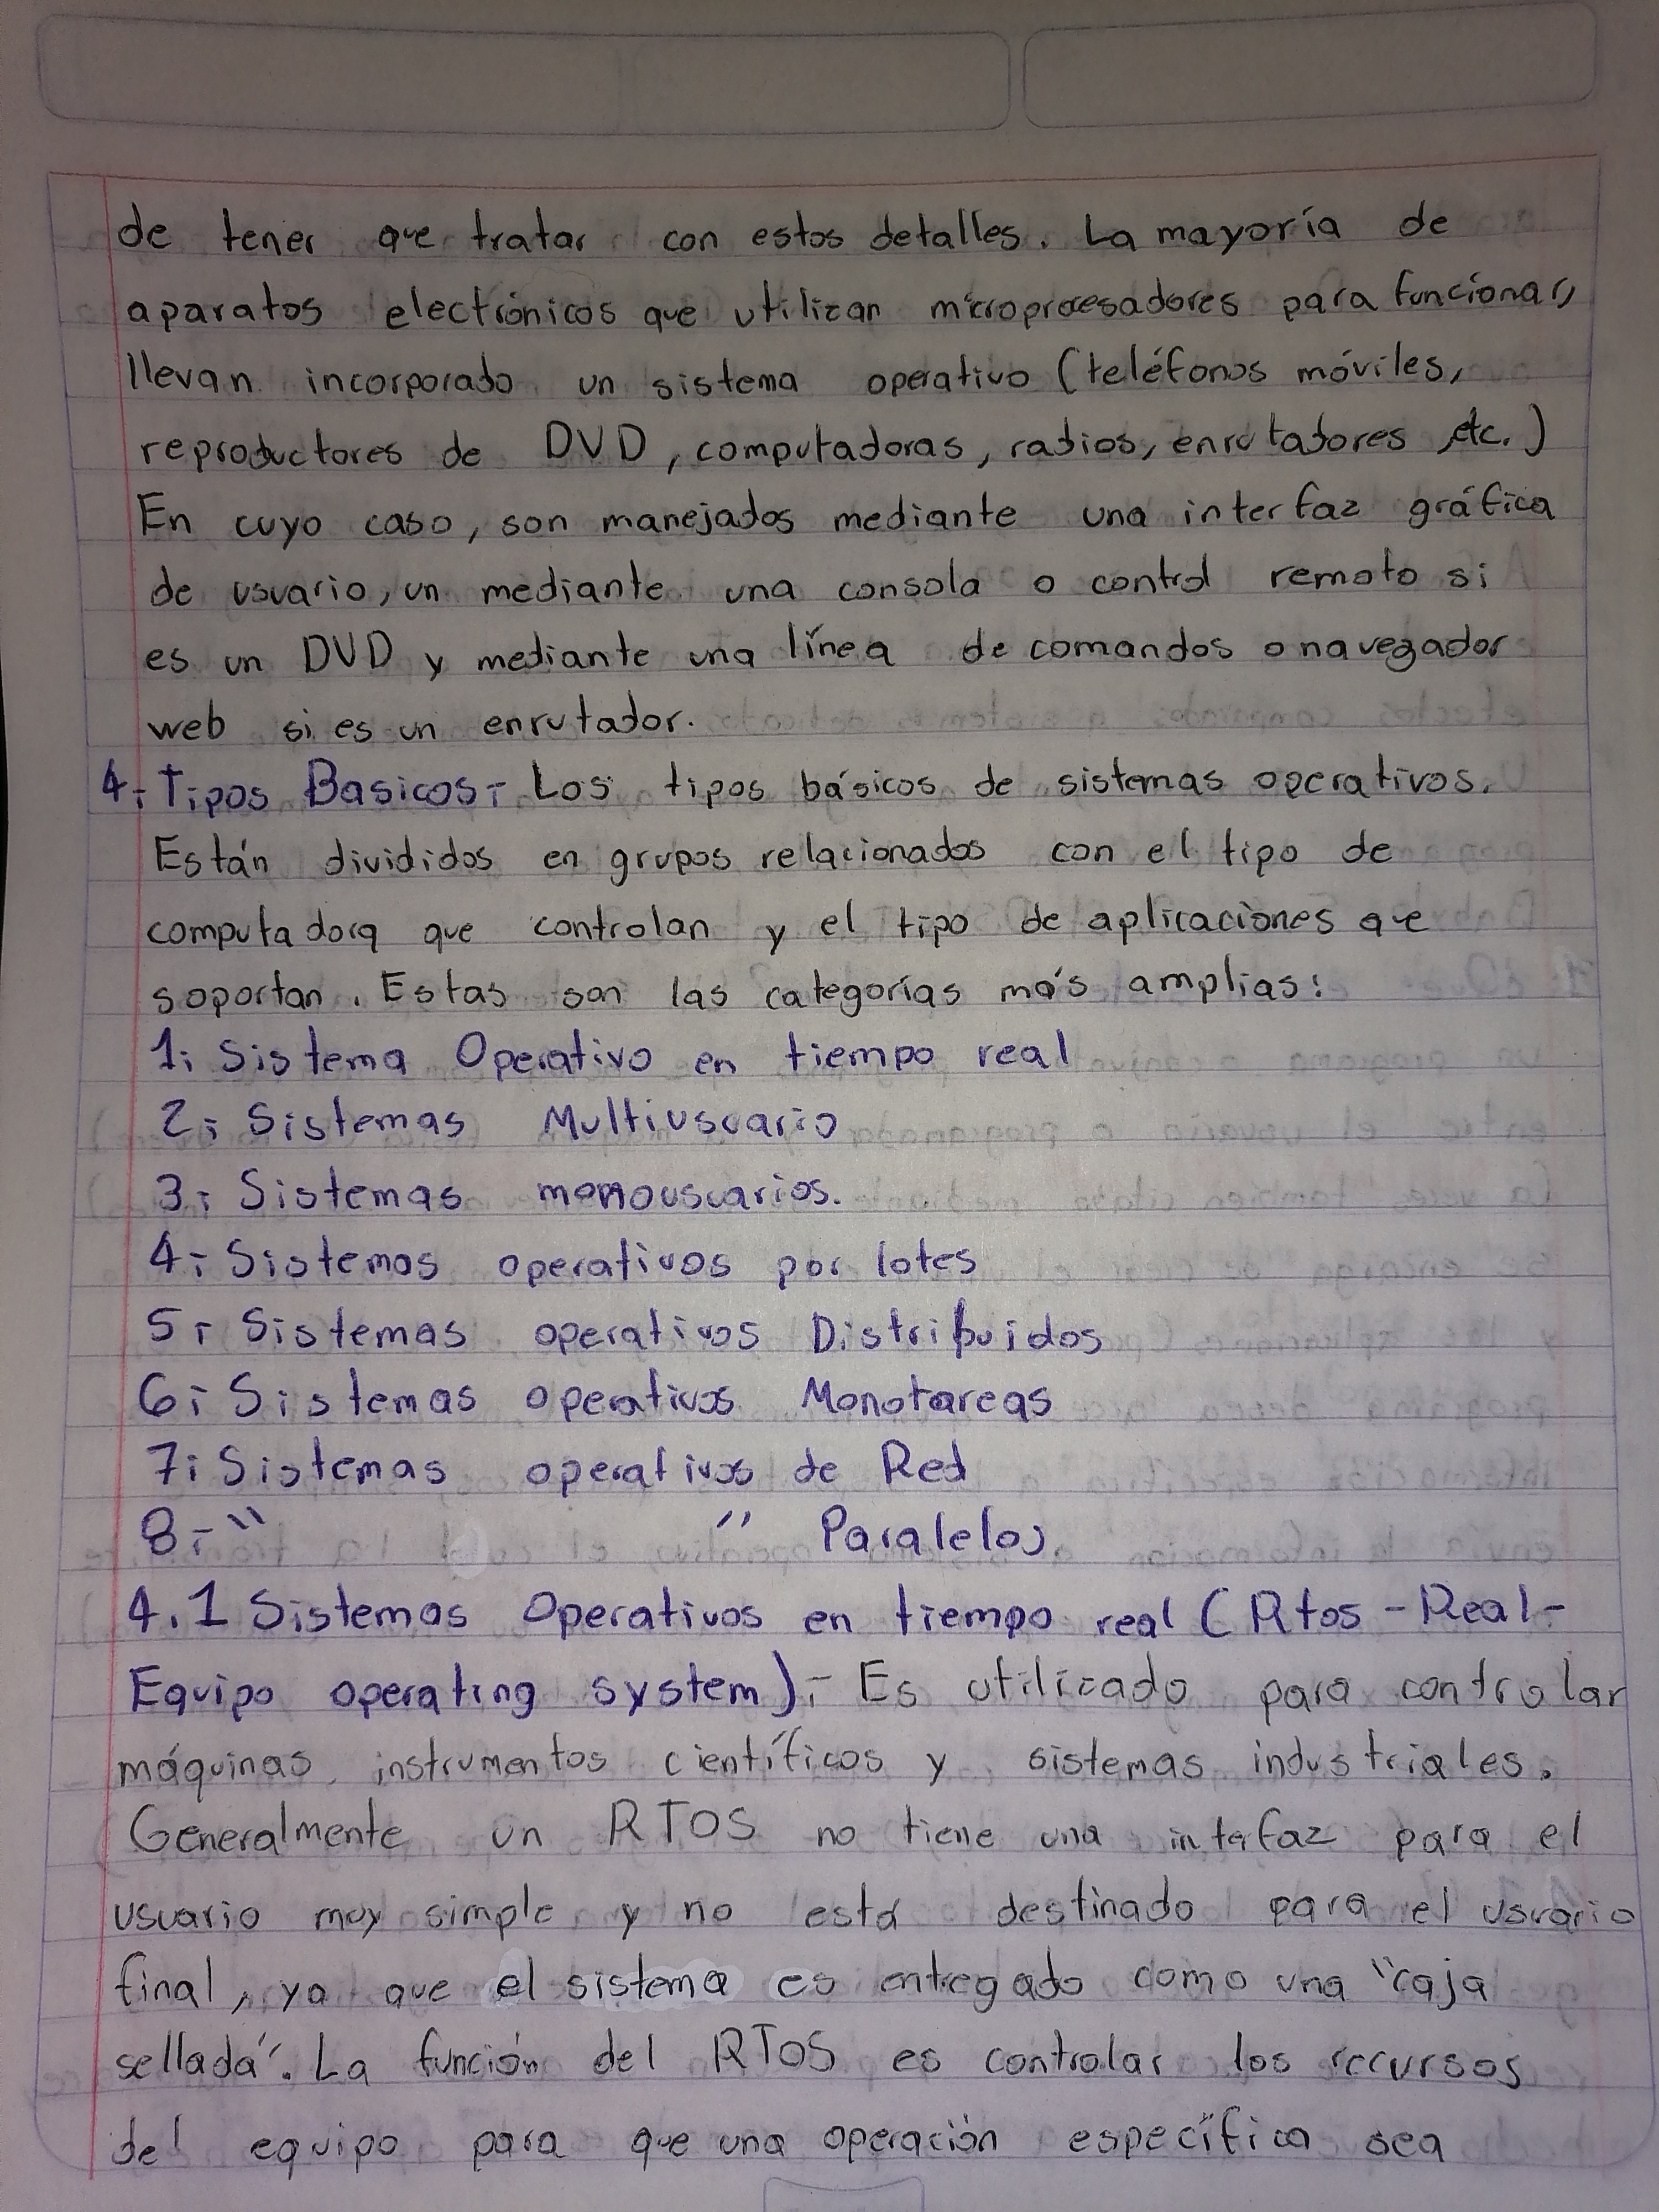 de tener que tratar con estos detalles. La mayoría de
aparatos electrónicos que utilizan microprocesadores para funcionar,
llevan incorporado un sistema operativo (teléfonos móviles,
reproductores de DVD, computadoras, radios, enrutadores, etc.)
En cuyo caso, son manejados mediante una interfaz gráfica
de usuario, un mediante una consola o control remoto si
es un DVD y mediante una línea de comandos o navegador
web si es un enrutador.
4.- Tipos Basicos.- Los tipos básicos de sistemas operativos.
Están divididos en grupos relacionados con el tipo de
computadora que controlan y el tipo de aplicaciones que
soportan. Estas son las categorías más amplias:
1.- Sistema Operativo en tiempo real
2.- Sistemas Multiusuario
3.- Sistemas monousuarios.
4.- Sistemas operativos por lotes
5.- Sistemas operativos Distribuidos
6.- Sistemas operativos Monotareas
7.- Sistemas operativos de Red
8.- " " Paralelos
4.1 Sistemas Operativos en tiempo real (Rtos - Real-
Equipo operating system).- Es utilizado para controlar
máquinas, instrumentos científicos y sistemas industriales.
Generalmente un RTOS no tiene una interfaz para el
usuario muy simple, y no está destinado para el usuario
final, ya que el sistema es entregado como una "caja
sellada". La función del RTOS es controlar los recursos
del equipo para que una operación específica sea